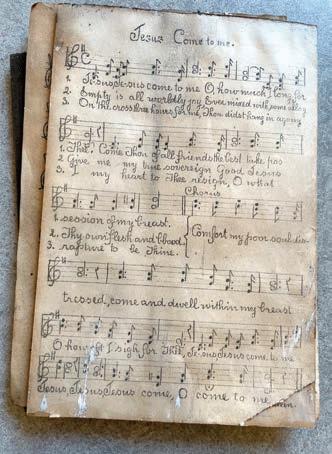 Jesus Come to me.
1. Jesus, Jesus come to me O how much I long for
2. Empty is all worldly joy Ever mixed with some alloy
3. On the cross three hours for me, Thou didst hang in agony
1. Thee, Come Thou of all friends the best take pos
2 Give me my true sovereign Good Jesus
3. I my heart to Thee resign, O what
Chorus
1. session of my breast.
2. Thy own flesh and blood
3. rapture to be Thine.
Comfort my poor soul dis-
tressed, come and dwell within my breast
O how oft I sigh for Thee, Jesus, Jesus come to me
Jesus, Jesus, Jesus come, O come to me